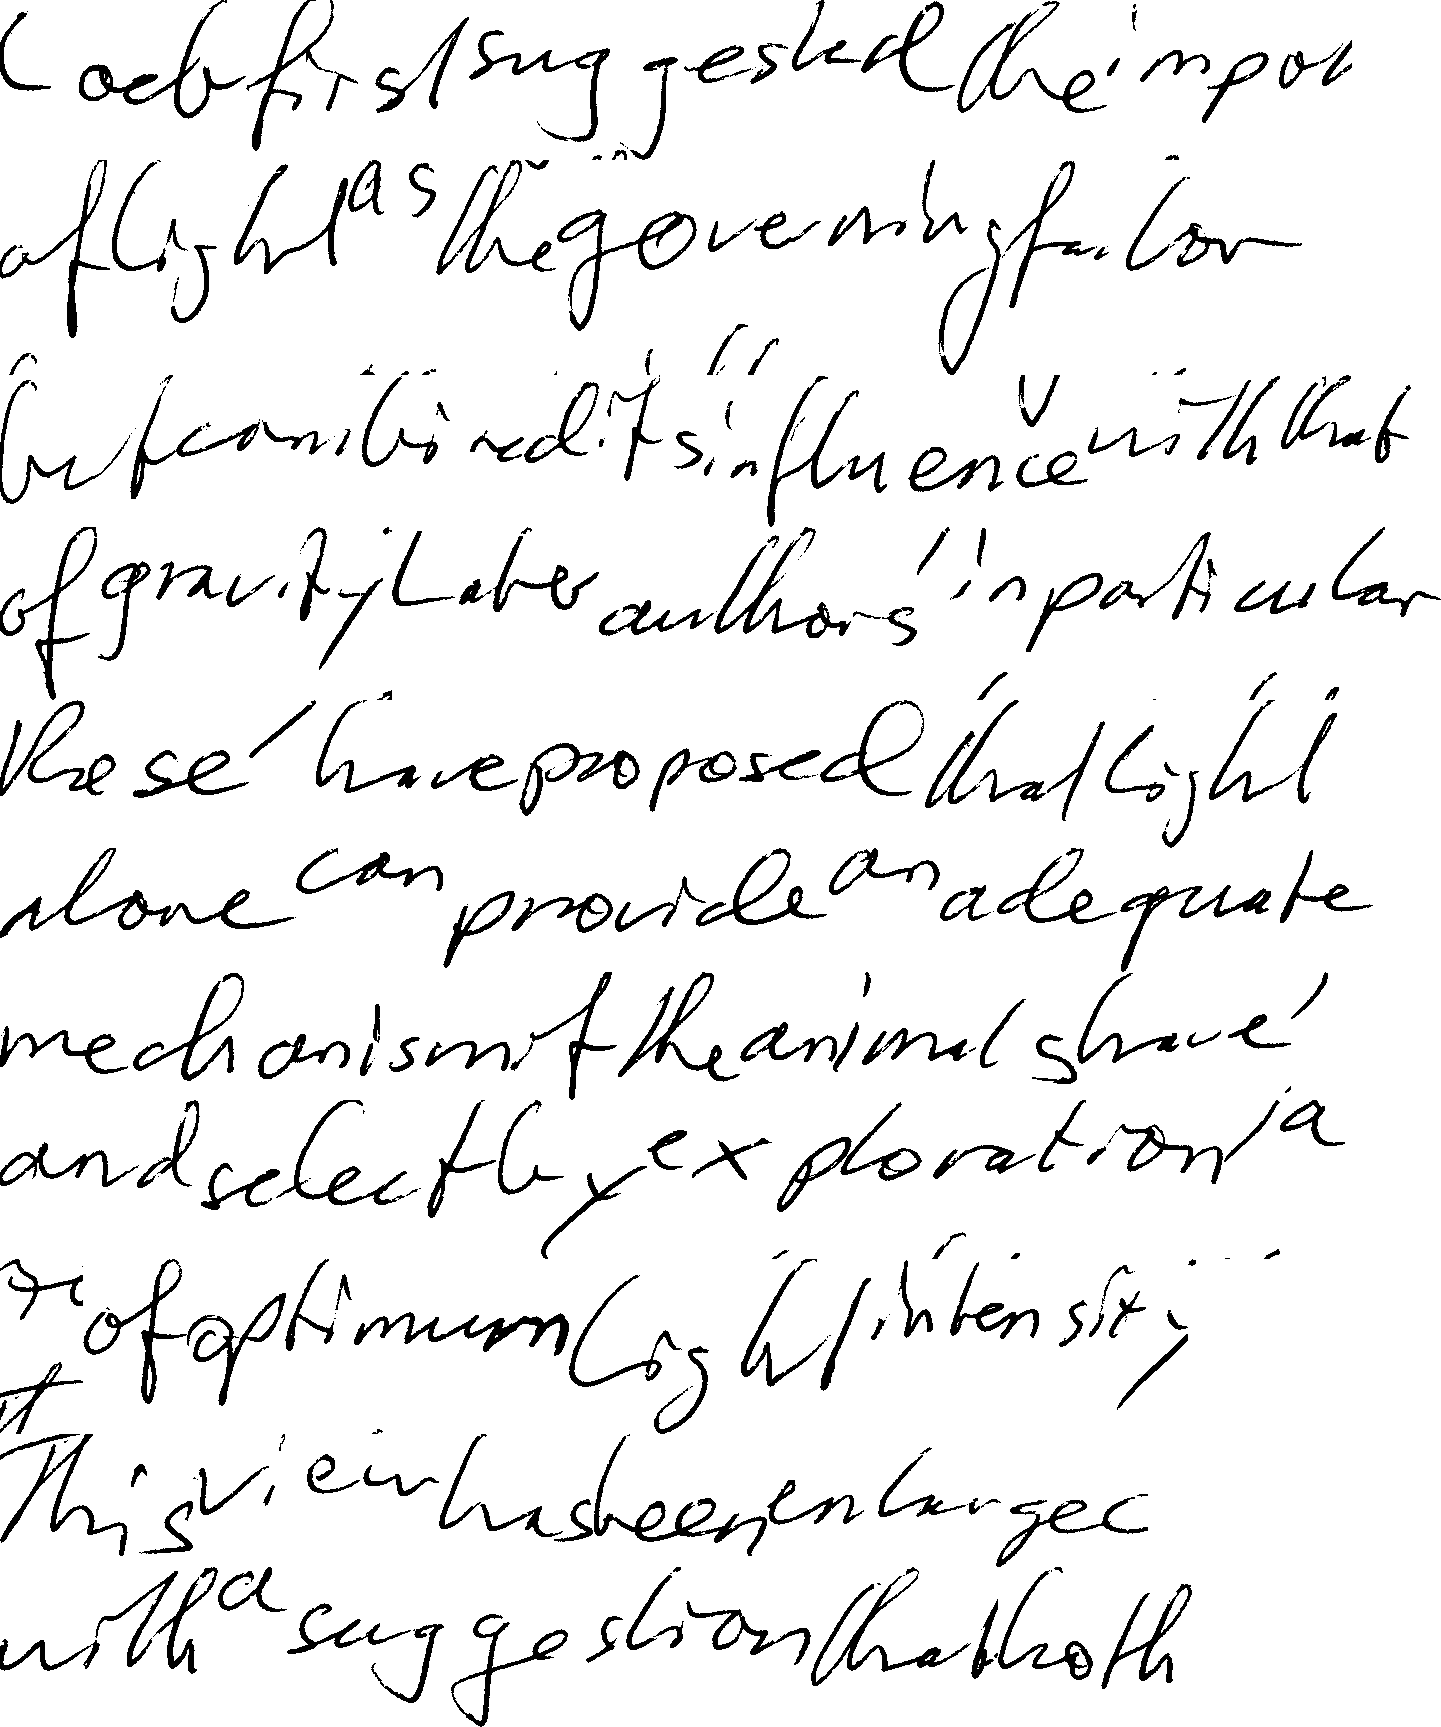 Loeb first suggested the impor
of light as the governing factor
but combined its influence with that
of gravity Later authors' in particular
these' have proposed that light
alone can provide an adequate
mechanism if the animals have'
and select by exploration' a
of optimum light intensity
This view has been enlarged
with a suggestion that both